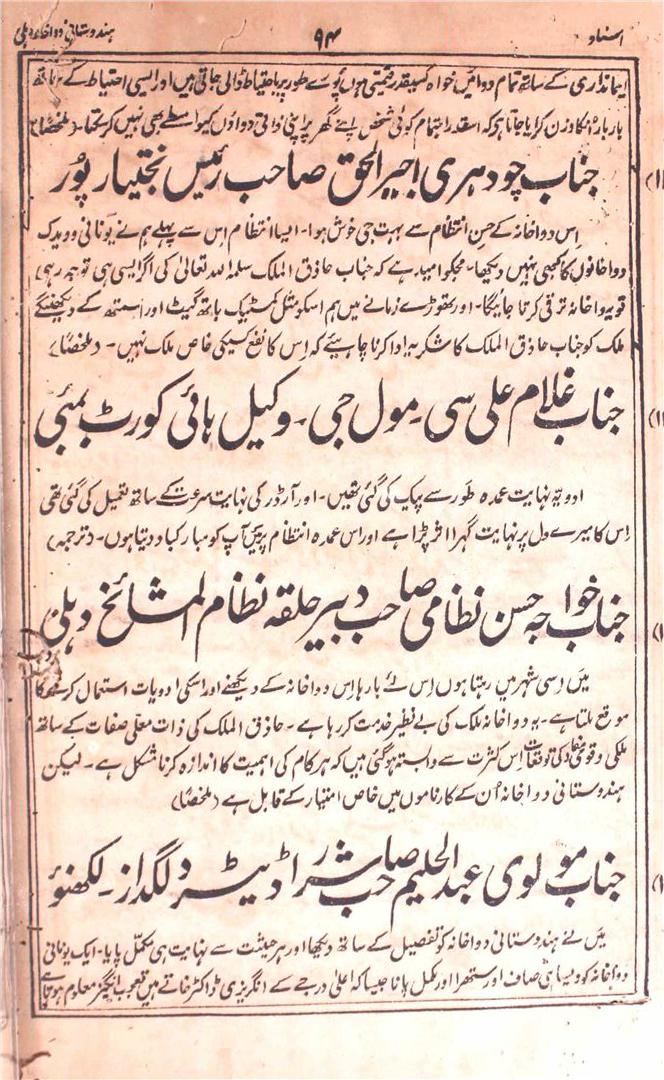 اسناد ۹۴ ہندوستانی دواخانہ دہلی
ایمانداری کے ساتھ تمام دوائیں خواہ کسیقدر قیمتی ہوں پورے طور پر باحتیاط ڈالی جاتی ہیں اور ایسی احتیاط کے ساتھ
بار بار انکا وزن کرایا جاتا ہی کہ اسقدر اہتمام کوئی شخص اپنے گھر پر اپنی ذاتی دواؤں کیواسطے بھی نہیں کر سکتا۔ (ملخصًا)
جناب چودہری اجیرالحق صاحب رئیس بختیارپور
اس دواخانہ کے حسن انتظام سے بہت جی خوش ہوا۔ ایسا انتظام اس سے پہلے ہم نے یونانی و ویدک
دواخانوں کا کبھی نہیں دیکھا۔ مجکو امید ہے کہ جناب حاذق الملک سلمہ اللہ تعالیٰ کی اگر ایسی ہی توجہ رہی
تو یہ دواخانہ ترقی کرتا جائیگا۔ اور تھوڑے زمانے میں ہم اسکو مثل کمسٹیک باتھ گیٹ اور اسمتھ کے دیکھینگے
ملک کو جناب حاذق الملک کا شکریہ ادا کرنا چاہیئے کہ اس کا نفع کسیکی خاص ملک نہیں۔ (ملخصًا)
جناب غلام علی سی۔ مول جی۔ وکیل ہائی کورٹ بمبئی
ادویہ نہایت عمدہ طور سے پیک کی گئی تھیں۔ اور آرڈر کی نہایت سرعت کے ساتھ تعمیل کی گئی تھی
اس کا میرے دل پر نہایت گہرا اثر پڑا ہے اور اس عمدہ انتظام پر میں آپ کو مبارکباد دیتا ہوں۔ (ترجمہ)
جناب خواجہ حسن نظامی صاحب دبیر حلقہ نظام المشائخ دہلی
میں اسی شہر میں رہتا ہوں اس لئے بارہا اس دواخانہ کے دیکھنے اور اسکی ادویات استعمال کرنیکا
موقع ملتا ہے۔ یہ دواخانہ ملک کی بے نظیر خدمت کر رہا ہے۔ حاذق الملک کی ذات معلی صفات کے ساتھ
ملکی و قومی توقعات اس کثرت سے وابستہ ہوگئی ہیں کہ ہر کام کی اہمیت کا اندازہ کرنا مشکل ہے۔ لیکن
ہندوستانی دواخانہ اُن کے کارناموں میں خاص امتیاز کے قابل ہے (ملخصًا)
جناب مولوی عبدالحلیم صاحب شرر اڈیٹر دلگداز۔ لکھنؤ
میں نے ہندوستانی دواخانہ کو تفصیل کے ساتھ دیکھا اور ہر حیثیت سے نہایت ہی مکمل پایا۔ ایک یونانی
دواخانہ کو ویسا ہی صاف اور ستھرا اور مکمل پانا جیسا کہ اعلیٰ درجے کے انگریزی ڈاکٹر خانے ہیں تعجب انگیز معلوم ہوتا ہے